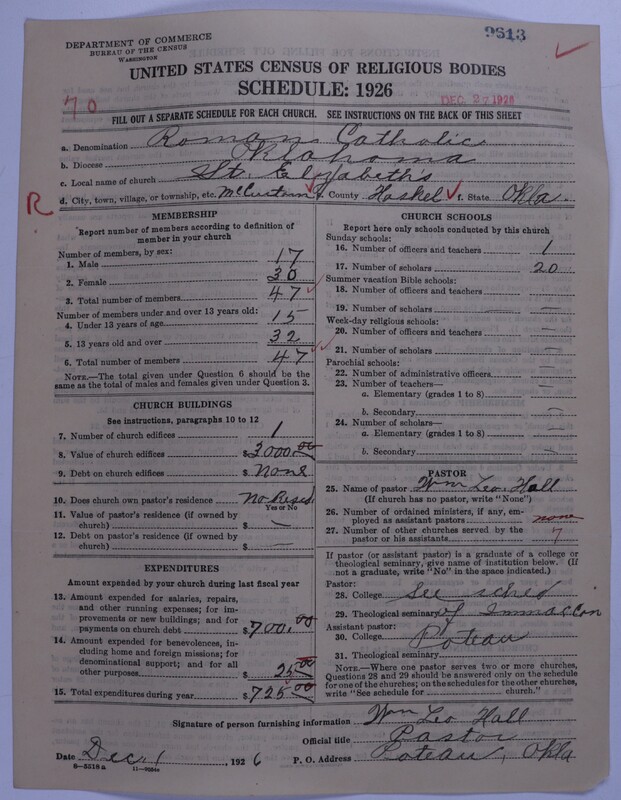 9613
DEPARTMENT OF COMMERCE
BUREAU OF THE CENSUS
WASHINGTON
UNITED STATES CENSUS OF RELIGIOUS BODIES
SCHEDULE: 1926
70
DEC 27 1926
FILL OUT A SEPARATE SCHEDULE FOR EACH CHURCH. SEE INSTRUCTIONS ON THE BACK OF THIS SHEET
a. Denomination Roman Catholic
b. Diocese Oklahoma
c. Local name of church St. Elizabeth's
R d. City, town, village, or township, etc. McCurtain e. County Haskel f. State Okla.
MEMBERSHIP
Report number of members according to definition of
member in your church
Number of members, by sex:
1. Male 17
2. Female 30
3. Total number of members 47
Number of members under and over 13 years old:
4. Under 13 years of age 15
5. 13 years old and over 32
6. Total number of members 47
NOTE.—The total given under Question 6 should be the
same as the total of males and females given under Question 3.
CHURCH BUILDINGS
See instructions, paragraphs 10 to 12
7. Number of church edifices 1
8. Value of church edifices $ 3000.00
9. Debt on church edifices $ None
10. Does church own pastor's residence No Resid
Yes or No
11. Value of pastor's residence (if owned by
church) $ —
12. Debt on pastor's residence (if owned by
church) $ —
EXPENDITURES
Amount expended by your church during last fiscal year
13. Amount expended for salaries, repairs,
and other running expenses; for im-
provements or new buildings; and for
payments on church debt $ 700.00
14. Amount expended for benevolences, in-
cluding home and foreign missions; for
denominational support; and for all
other purposes $ 25.00
15. Total expenditures during year $ 725.00
CHURCH SCHOOLS
Report here only schools conducted by this church
Sunday schools:
16. Number of officers and teachers 1
17. Number of scholars 20
Summer vacation Bible schools:
18. Number of officers and teachers —
19. Number of scholars —
Week-day religious schools:
20. Number of officers and teachers —
21. Number of scholars —
Parochial schools:
22. Number of administrative officers —
23. Number of teachers—
a. Elementary (grades 1 to 8) —
b. Secondary —
24. Number of scholars—
a. Elementary (grades 1 to 8) —
b. Secondary —
PASTOR
25. Name of pastor Wm Leo. Hall
(If church has no pastor, write "None")
26. Number of ordained ministers, if any, em-
ployed as assistant pastors none
27. Number of other churches served by the
pastor or his assistants 7
If pastor (or assistant pastor) is a graduate of a college or
theological seminary, give name of institution below. (If
not a graduate, write "No" in the space indicated.)
Pastor:
28. College See sched
29. Theological seminary of Immac Con
Assistant pastor:
30. College Poteau
31. Theological seminary
NOTE.—Where one pastor serves two or more churches,
Questions 28 and 29 should be answered only on the schedule
for one of the churches; on the schedules for the other churches,
write "See schedule for church."
Signature of person furnishing information Wm Leo Hall
Official title Pastor
Date Dec. 1, 1926 P. O. Address Poteau, Okla
8—5518a 11—9084a